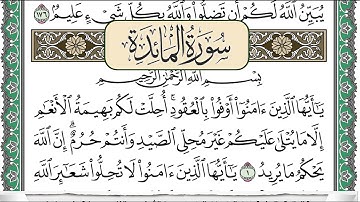 يُبَيِّنُ ٱللَّهُ لَكُمْ أَن تَضِلُّوا۟ وَٱللَّهُ بِكُلِّ شَىْءٍ عَلِيمٌۢ ١٧٦
سُورَةُ المَائِدَةِ
بِسْمِ ٱللَّهِ ٱلرَّحْمَٰنِ ٱلرَّحِيمِ
يَٰٓأَيُّهَا ٱلَّذِينَ ءَامَنُوٓا۟ أَوْفُوا۟ بِٱلْعُقُودِ ۚ أُحِلَّتْ لَكُم بَهِيمَةُ ٱلْأَنْعَٰمِ
إِلَّا مَا يُتْلَىٰ عَلَيْكُمْ غَيْرَ مُحِلِّى ٱلصَّيْدِ وَأَنتُمْ حُرُمٌ ۗ إِنَّ ٱللَّهَ
يَحْكُمُ مَا يُرِيدُ ١ يَٰٓأَيُّهَا ٱلَّذِينَ ءَامَنُوا۟ لَا تُحِلُّوا۟ شَعَٰٓئِرَ ٱللَّهِ